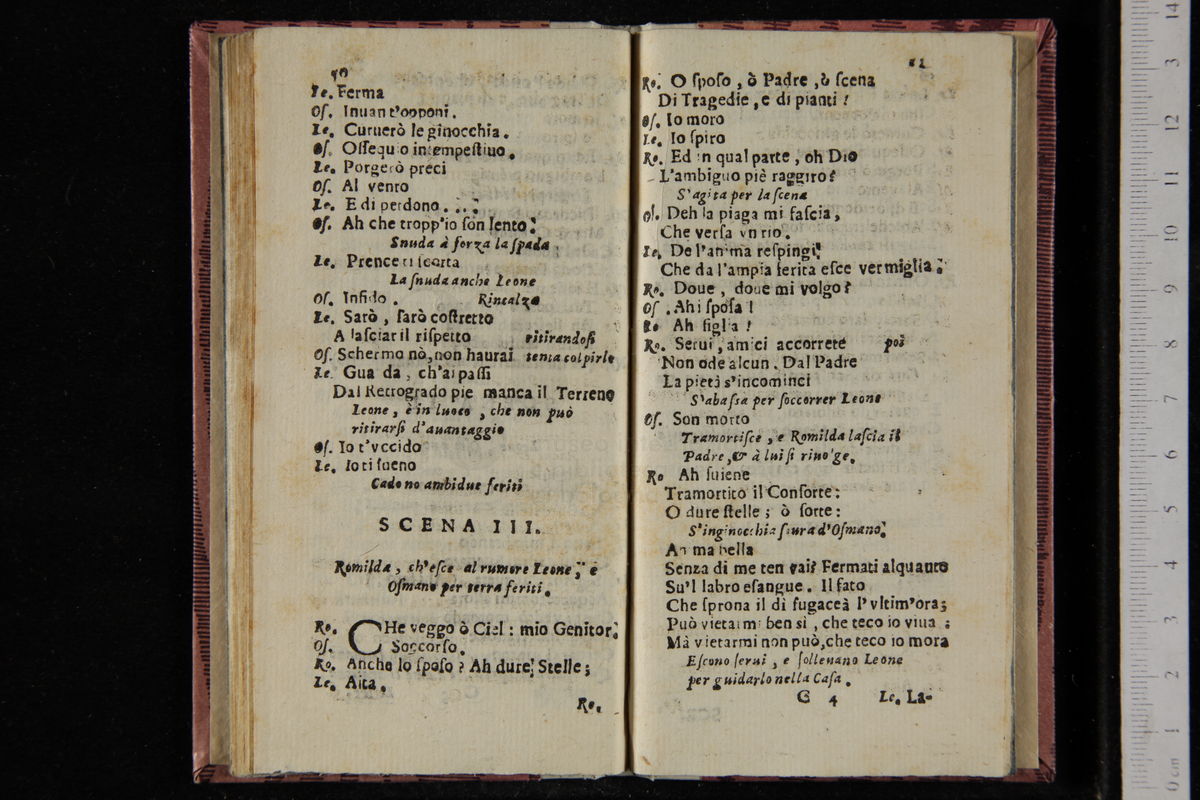 50
Le. Ferma
Oſ. Inuan t'opponi.
Le. Curuerò le ginocchia.
Oſ. Oſſequio intempeſtiuo.
Le. Porgerò preci
Oſ. Al vento
Le. E di perdono....
Oſ. Ah che tropp'io ſon lento:
Snuda à forza la ſpada.
Le. Prence ti ſcorta
La ſnuda anche Leone
Oſ. Infido. Rincalza
Le. Sarò, ſarò coſtretto
A laſciar il riſpetto ritirandoſi
Oſ. Schermo nò, non haurai tenta colpirlo
Le. Gua da, ch'ai paſſi
Dal Retrogrado pie manca il Terreno
Leone, è in luoco, che non può
ritirarſi d'auantaggio
Oſ. Io t'vccido
Le. Io ti ſueno
Cadono ambidue feriti
SCENA III.
Romilda, ch'eſce al rumore Leone, e
Oſmano per terra feriti.
Ro. CHe veggo ò Ciel: mio Genitor.
Oſ. Soccorſo.
Ro. Anche lo ſpoſo? Ah dure! Stelle;
Le. Aita.
Ro.
81
Ro. O ſpoſo, ò Padre, ò ſcena
Di Tragedie, e di pianti!
Oſ. Io moro
Le. Io ſpiro
Ro. Ed in qual parte, oh Dio
L'ambiguo piè raggiro?
S'agita per la ſcena
Oſ. Deh la piaga mi faſcia,
Che verſa vn rio.
Le. De l'anima reſpingi!
Che da l'ampia ferita eſce vermiglia.
Ro. Doue, doue mi volgo?
Oſ. Ahi ſpoſa!
Le Ah figlia!
Ro. Serui, amici accorrete poi
Non ode alcun. Dal Padre
La pietà s'incominci
S'abaſſa per ſoccorrer Leone
Oſ. Son morto
Tramortiſce, e Romilda laſcia il
Padre, & à lui ſi riuo'ge.
Ro Ah ſuiene
Tramortito il Conſorte:
O dure ſtelle; ò ſorte:
S'inginocchia ſoura d'Oſmano.
An ma bella
Senza di me ten vai? Fermati alquanto
Su'l labro eſangue. Il fato
Che ſprona il dì fugace à l'vltim'ora;
Può vietarmi ben sì, che teco io viua;
Mà vietarmi non può, che teco io mora
Eſcono ſerui, e ſolleuano Leone
per guidarlo nella Caſa.
G 4 Le. La-